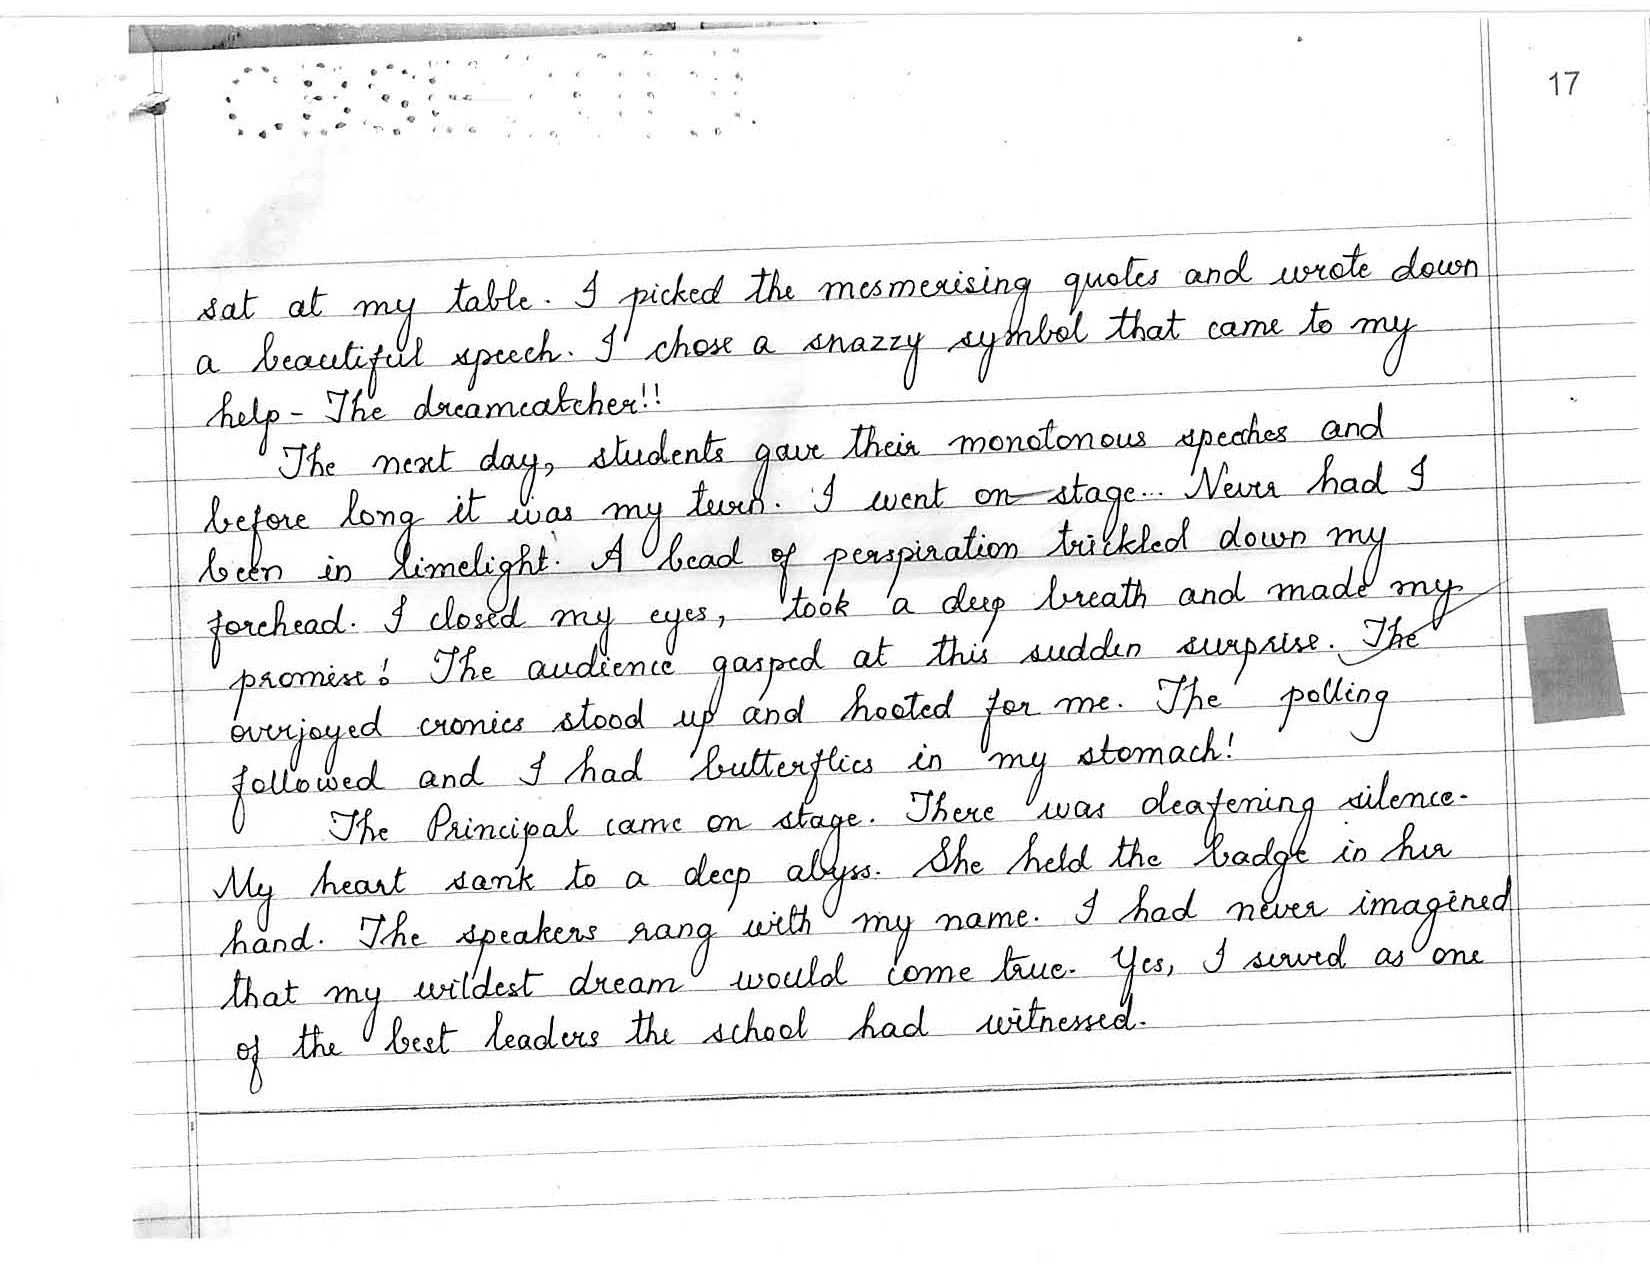 17
sat at my table. I picked the mesmerising quotes and wrote down
a beautiful speech. I chose a snazzy symbol that came to my
help - The dreamcatcher!!
The next day, students gave their monotonous speeches and
before long it was my turn. I went on stage... Never had I
been in limelight. A bead of perspiration trickled down my
forehead. I closed my eyes, took a deep breath and made my
promise! The audience gasped at this sudden surprise. The
overjoyed cronies stood up and hooted for me. The polling
followed and I had butterflies in my stomach!
The Principal came on stage. There was deafening silence.
My heart sank to a deep abyss. She held the badge in her
hand. The speakers rang with my name. I had never imagined
that my wildest dream would come true. Yes, I served as one
of the best leaders the school had witnessed.